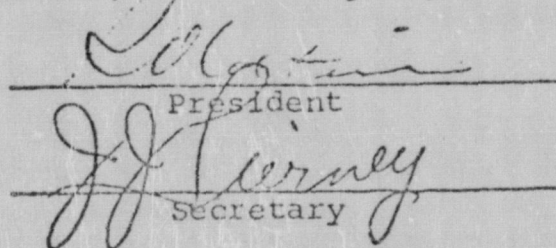 President
J J Tierney
Secretary